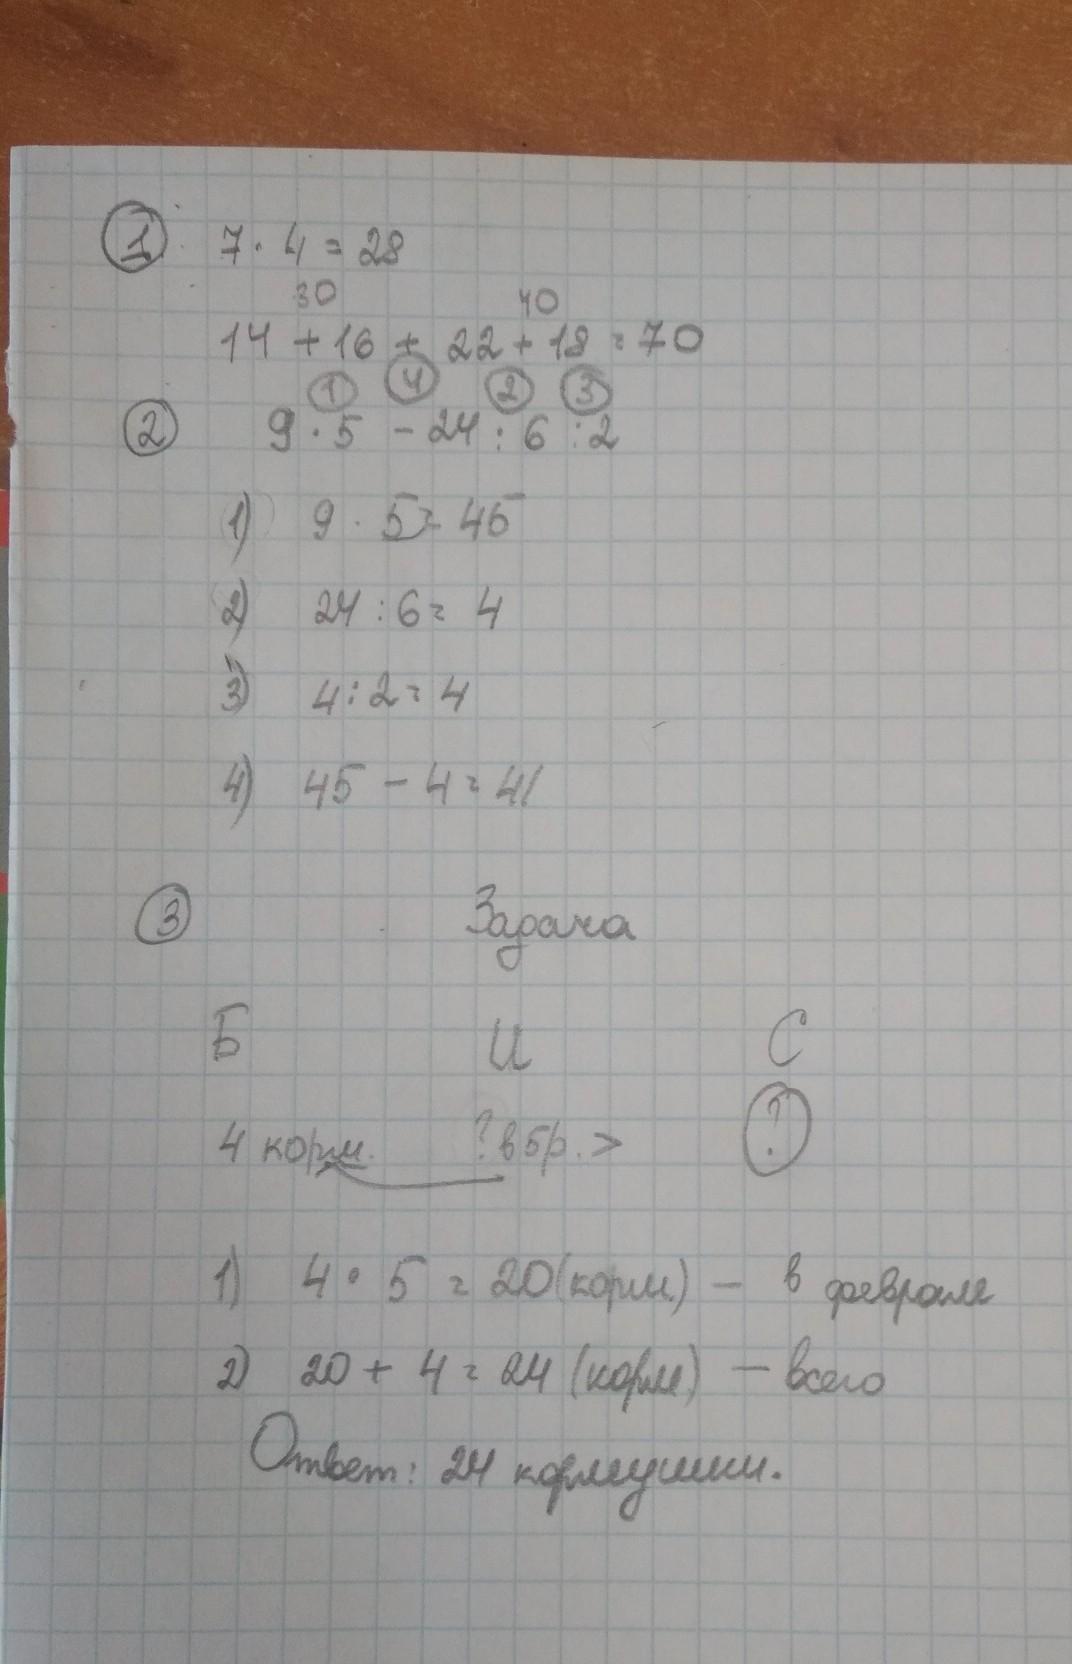 1 7 · 4 = 28
30 40
14 + 16 + 22 + 18 = 70
1 4 2 3
2 9 · 5 - 24 : 6 : 2
1) 9 · 5 = 45
2) 24 : 6 = 4
3) 4 : 2 = 4
4) 45 - 4 = 41
3 Задача
Б И С
4 корм. ? в 5 р. > ?
1) 4 · 5 = 20 (корм.) — в феврале
2) 20 + 4 = 24 (корм) — всего
Ответ: 24 кормушки.